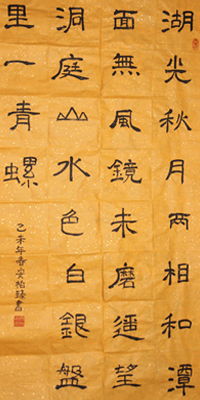 湖光秋月两相和潭
面無風鏡未磨遥望
洞庭山水色白銀盤
里一青螺
乙未年春 書